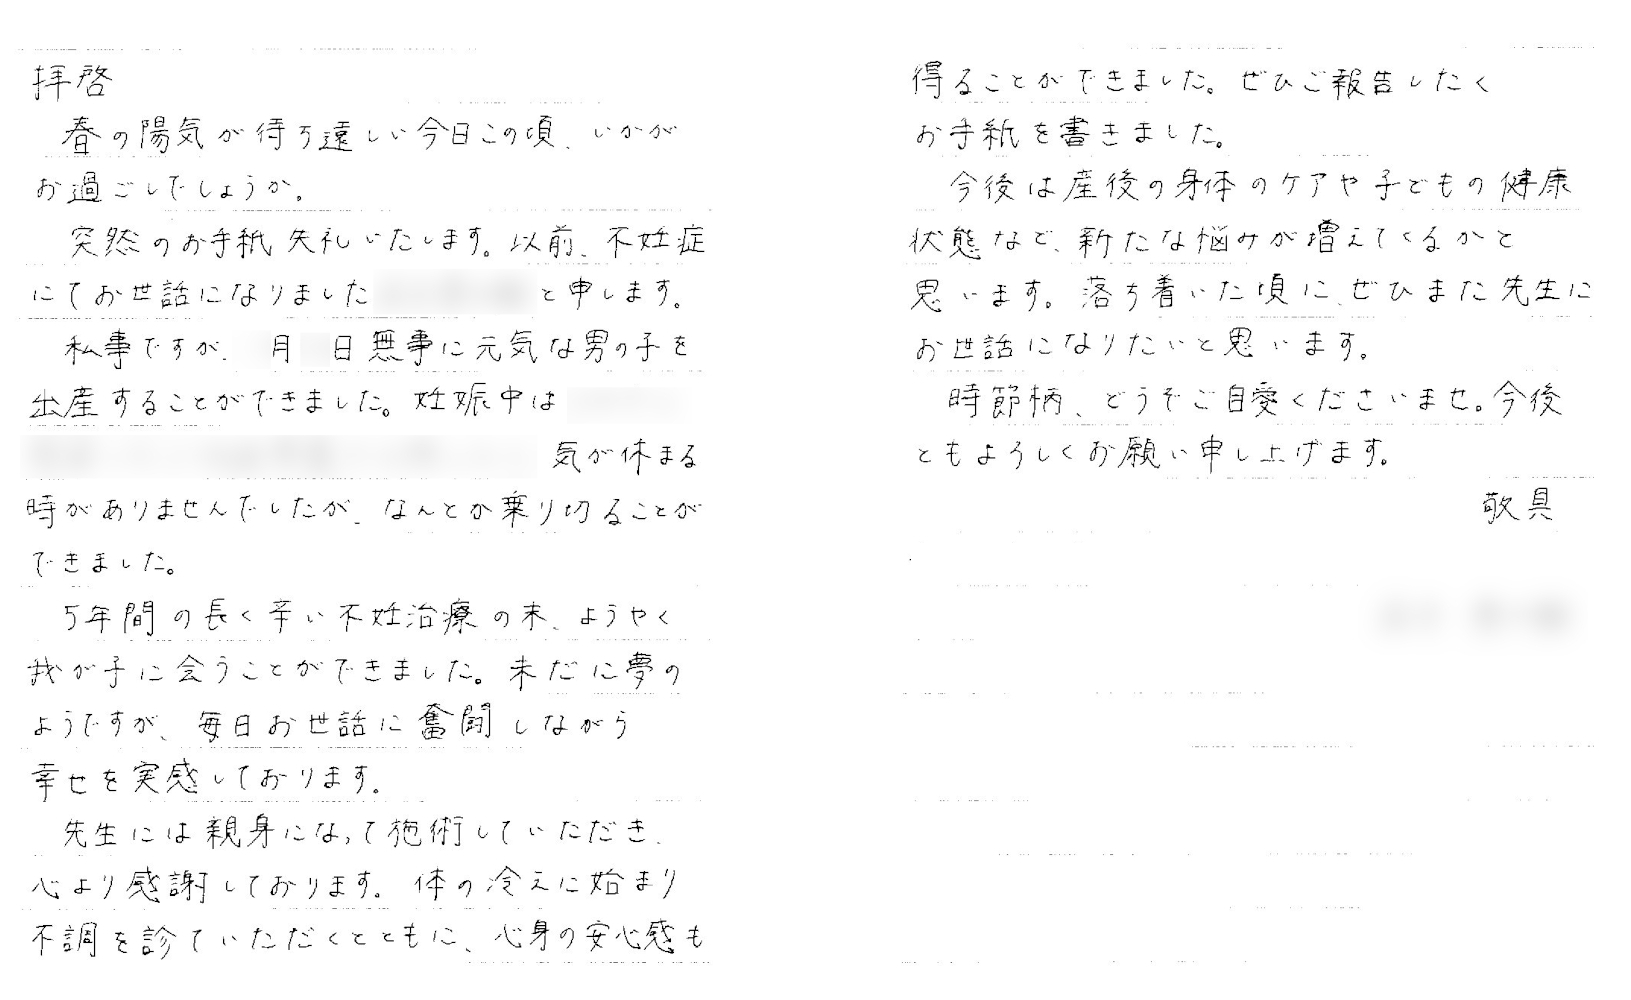 拝啓
春の陽気が待ち遠しい今日この頃、いかが
お過ごしでしょうか。
突然のお手紙失礼いたします。以前、不妊症
にてお世話になりました と申します。
私事ですが、 月 日無事に元気な男の子を
出産することができました。妊娠中は
気が休まる
時がありませんでしたが、なんとか乗り切ることが
できました。
5年間の長く辛い不妊治療の末、ようやく
我が子に会うことができました。未だに夢の
ようですが、毎日お世話に奮闘しながら
幸せを実感しております。
先生には親身になって施術していただき、
心より感謝しております。体の冷えに始まり
不調を診ていただくとともに、心身の安心感も
得ることができました。ぜひご報告したく
お手紙を書きました。
今後は産後の身体のケアや子どもの健康
状態など、新たな悩みが増えてくるかと
思います。落ち着いた頃に、ぜひまた先生に
お世話になりたいと思います。
時節柄、どうぞご自愛くださいませ。今後
ともよろしくお願い申し上げます。
敬具